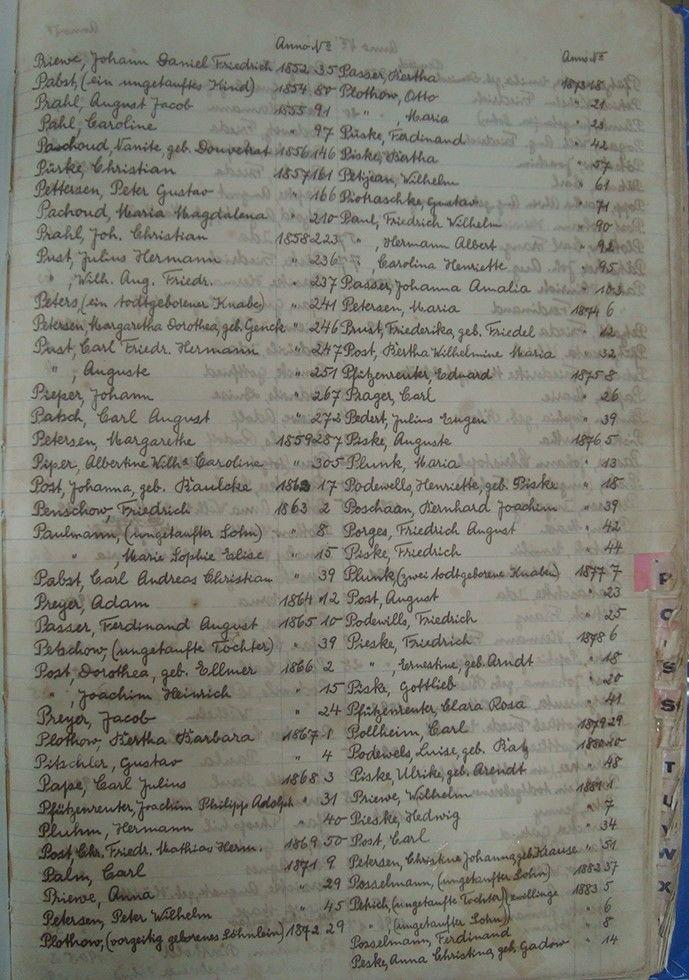 Anno No
Priewe, Johann Daniel Friedrich 1852 35
Pabst, (ein ungetauftes Kind) 1854 80
Prahl, August Jacob 1855 91
Pahl, Caroline " 97
Paschoud, Nanite, geb. Douvetrst 1856 146
Pürke, Christian 1857 161
Pettersen, Peter Gustav " 166
Pachoud, Maria Magdalena " 210
Prahl, Joh. Christian 1858 223
Pust, Julius Hermann " 236
" , Wilh. Aug. Friedr. " 237
Peters, (ein todtgeborener Knabe) " 241
Petersen, Margaretha Dorothea, geb. Genck " 246
Pust, Carl Friedr. Hermann " 247
" , Auguste " 251
Preper, Johann " 267
Patsch, Carl August " 273
Petersen, Margarethe 1859 287
Piper, Albertine Wilh. Caroline " 305
Post, Johanna, geb. Kaulcke 17
Penschow, Friedrich 1863 2
Paulmann, (ungetaufter Sohn) " 8
" , Marie Sophie Elise " 15
Pabst, Carl Andreas Christian " 39
Preyer, Adam 1864 12
Passer, Ferdinand August 1865 10
Petschow, (ungetaufte Tochter) " 39
Post Dorothea, geb. Ellmer 1866 2
" , Joachim Heinrich " 15
Preyer, Jacob " 24
Plothow, Bertha Barbara 1867 1
Pitschler, Gustav " 4
Pape, Carl Julius 1868 3
Pfützenreuter, Joachim Philipp Adolph " 31
Pluhm, Hermann " 40
Post Chr. Friedr. Mathias Herm. 1869 50
Palm, Carl 1871 9
Priewe, Anna " 29
Petersen, Peter Wilhelm " 45
Plothow, (vorzeitig geborenes Söhnlein) 1872 29
Anno No
Passer, Bertha 1873 18
Plothow, Otto " 21
" , Maria " 23
Püske, Ferdinand " 42
Piske, Bertha " 57
Petijean, Wilhelm " 61
Piotraschke, Gustav " 71
Paul, Friedrich Wilhelm " 90
" , Hermann Albert " 92
" , Carolina Henriette " 95
Passer, Johanna Amalia " 103
Petersen, Maria 1874 6
Prust, Friederika, geb. Friedel " 12
Post, Bertha Wilhelmine Maria " 32
Pfützenreuter, Eduard 1875 8
Prager, Carl " 26
Pedert, Julius Eugen " 39
Piske, Auguste 1876 5
Plunk, Maria " 13
Podewells, Henriette, geb. Piske " 18
Poschaan, Bernhard Joachim " 39
Porges, Friedrich August " 42
Piske, Friedrich " 44
Plunk, (zwei todtgeborene Knaben) 1877 7
Post, August " 23
Podewills, Friedrich " 25
Pieske, Friedrich 1878 6
" , Ernestine, geb. Arndt " 18
Piske, Gottlieb " 20
Pfützenreuter, Clara Rosa " 41
Pollheim, Carl 1879 29
Podewels, Luise, geb. Ratz 1880 10
Piske, Ulrike, geb. Arendt " 48
Priewe, Wilhelm 1881 1
Pieske, Hedwig " 7
Post, Carl " 34
Petersen, Christine Johanna, geb. Krause " 51
Posselmann, (ungetaufter Sohn) 1882 37
Petrich, (ungetaufte Tochter) Zwillinge 1883 5
" , (ungetaufter Sohn) " 6
Posselmann, Ferdinand " 8
Peske, Anna Christina, geb. Gadow " 14
P
S
S
T
U
V
W
X